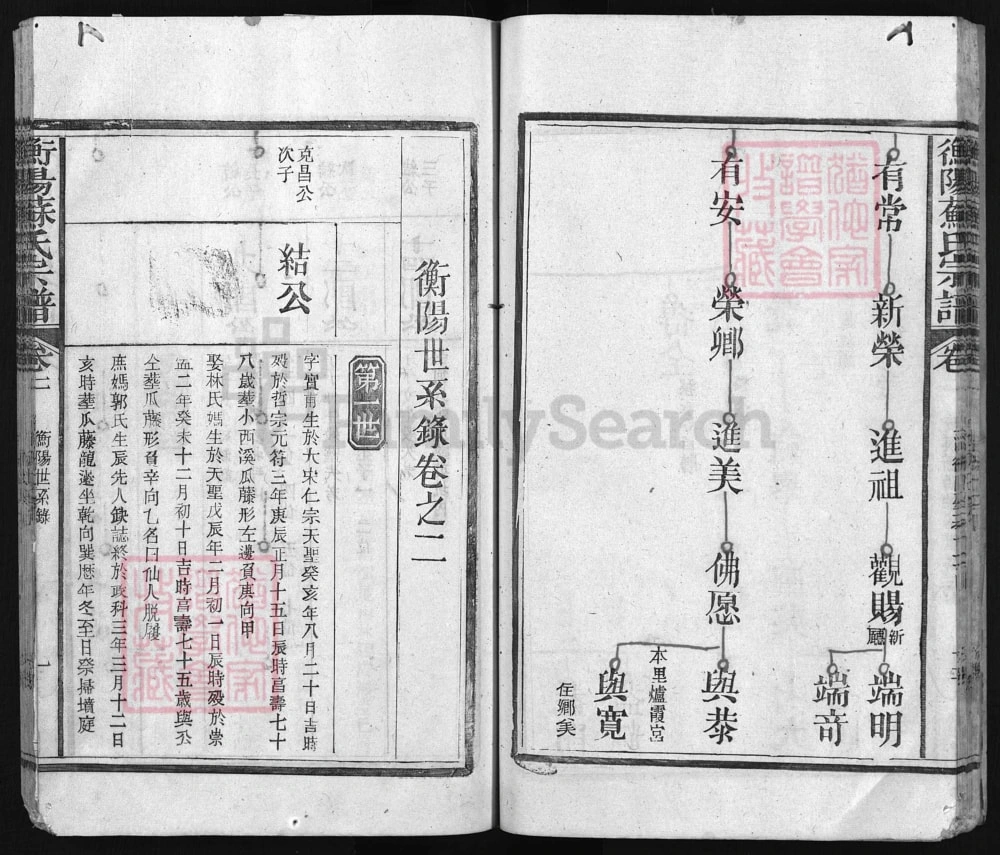 衡陽蘇氏宗譜
有常
新榮
進祖
觀賜
新
端明
端奇
有安
榮鄉
進美
佛愿
與恭
本里爐霞宮
與寬
住鄉矣
衡陽世系錄卷之二
第一世
克昌公
次子
結公
字實甫生於大宋仁宗天聖癸亥年八月二十日吉時
歿於哲宗元符三年庚辰正月十五日辰時亯壽七十
八歲葬小西溪瓜藤形左邊負庚向甲
娶林氏媽生於天聖戊辰年二月初一日辰時歿於崇
二年癸未十二月初十日吉時亯壽七十五歲與公
仝葬瓜藤形負辛向乙名曰仙人脫履
庶媽郭氏生辰先人缺誌終於政科三年三月十二日
亥時葬瓜藤龍坐乾向巽曆年冬至日祭掃墳庭
衡陽蘇氏宗譜
卷二
衡陽世系錄
一
FamilySearch